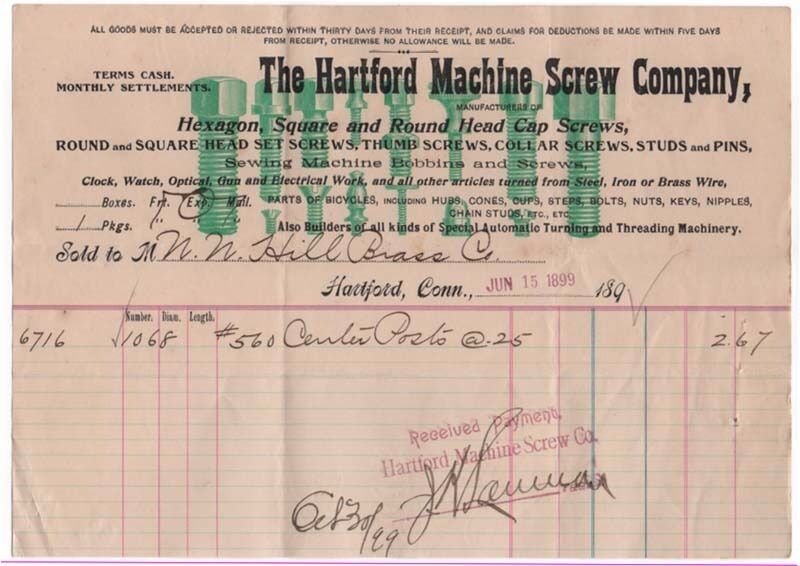 ALL GOODS MUST BE ACCEPTED OR REJECTED WITHIN THIRTY DAYS FROM THEIR RECEIPT, AND CLAIMS FOR DEDUCTIONS BE MADE WITHIN FIVE DAYS
FROM RECEIPT, OTHERWISE NO ALLOWANCE WILL BE MADE.
TERMS CASH.
MONTHLY SETTLEMENTS.
The Hartford Machine Screw Company,
MANUFACTURERS OF
Hexagon, Square and Round Head Cap Screws,
ROUND and SQUARE HEAD SET SCREWS, THUMB SCREWS, COLLAR SCREWS, STUDS and PINS,
Sewing Machine Bobbins and Screws,
Clock, Watch, Optical, Gun and Electrical Work, and all other articles turned from Steel, Iron or Brass Wire,
Boxes. Frt. Exp. Mail. PARTS OF BICYCLES, INCLUDING HUBS, CONES, CUPS, STEPS, BOLTS, NUTS, KEYS, NIPPLES,
CHAIN STUDS, ETC., ETC.
1 Pkgs. Also Builders of all kinds of Special Automatic Turning and Threading Machinery.
Sold to M N. N. Hill Brass Co.
Hartford, Conn., JUN 15 1899 189
Number. Diam. Length.
6716 1068 #560 Center Posts @ .25 2.67
Received Payment,
Hartford Machine Screw Co.